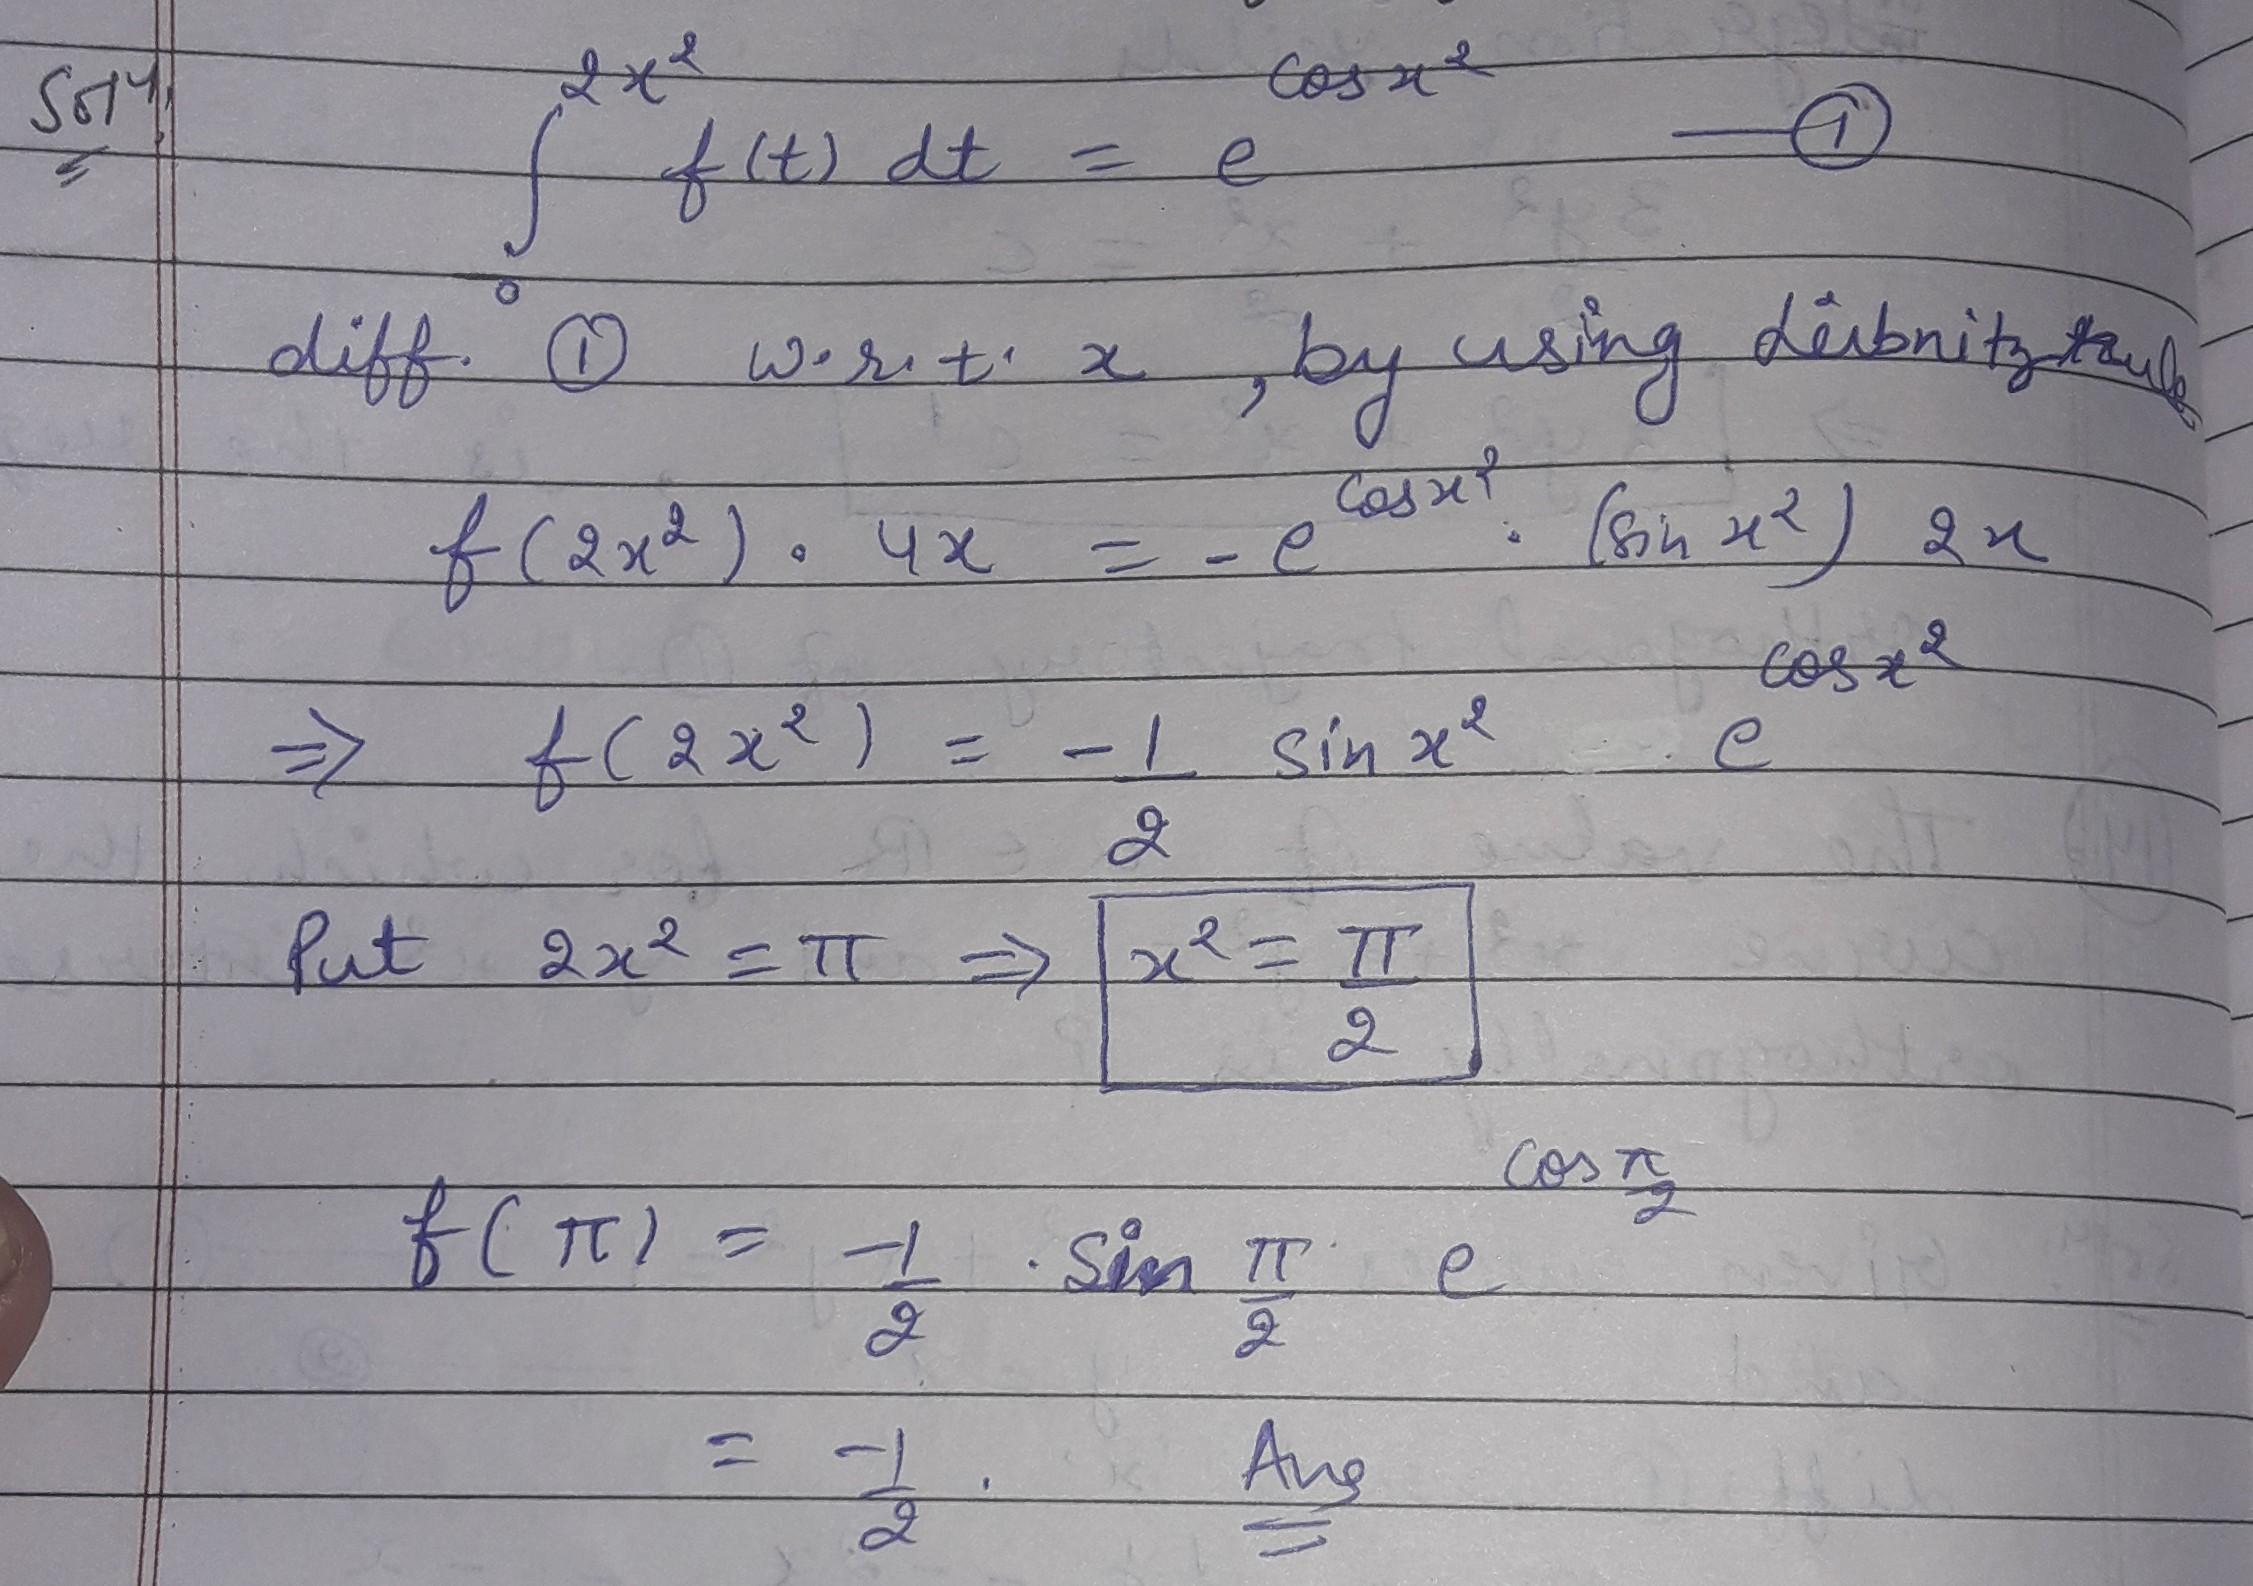 Solⁿ.
∫₀^{2x²} f(t) dt = e^{cos x²} —①
diff. ① w.r.t. x, by using Leibnitz rule
f(2x²) . 4x = - e^{cos x²} . (sin x²) 2x
⇒ f(2x²) = -1/2 sin x² . e^{cos x²}
Put 2x² = π ⇒ x² = π/2
f(π) = -1/2 . sin π/2 e^{cos π/2}
= -1/2 . Ans